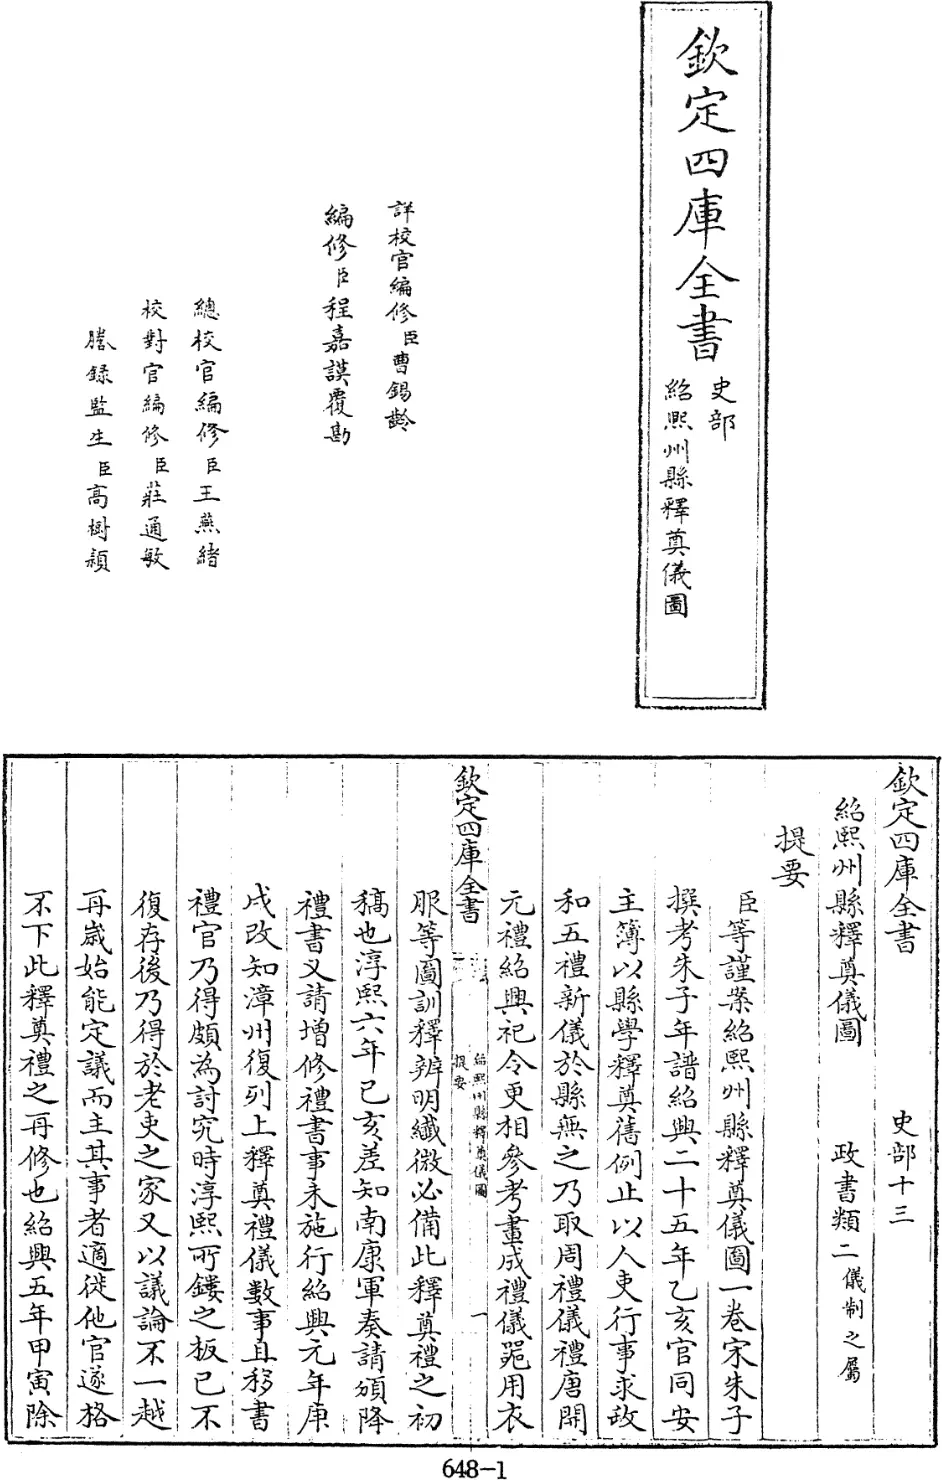 欽定四庫全書
史部
紹熙州縣釋奠儀圖
詳校官編修臣曹錫齡
編修臣程嘉謨覆勘
總校官編修臣王燕緒
校對官編修臣莊通敏
謄錄監生臣高樹頴
欽定四庫全書 史部十三
紹熙州縣釋奠儀圖 政書類二儀制之屬
提要
臣等謹案紹熙州縣釋奠儀圖一卷宋朱子
撰考朱子年譜紹興二十五年乙亥官同安
主簿以縣學釋奠舊例止以人吏行事求政
和五禮新儀於縣無之乃取周禮儀禮唐開
元禮紹興祀令更相參考畫成禮儀器用衣
欽定四庫全書
紹熙州縣釋奠儀圖
提要
一
服等圖訓釋辨明纖微必備此釋奠禮之初
稿也淳熙六年己亥差知南康軍奏請頒降
禮書又請增修禮書事未施行紹興元年庚
戌改知漳州復列上釋奠禮儀數事且移書
禮官乃得頗為討究時淳熙所鏤之板已不
復存後乃得於老吏之家又以議論不一越
再歲始能定議而主其事者適徙他官遂格
不下此釋奠禮之再修也紹興五年甲寅除
648-1